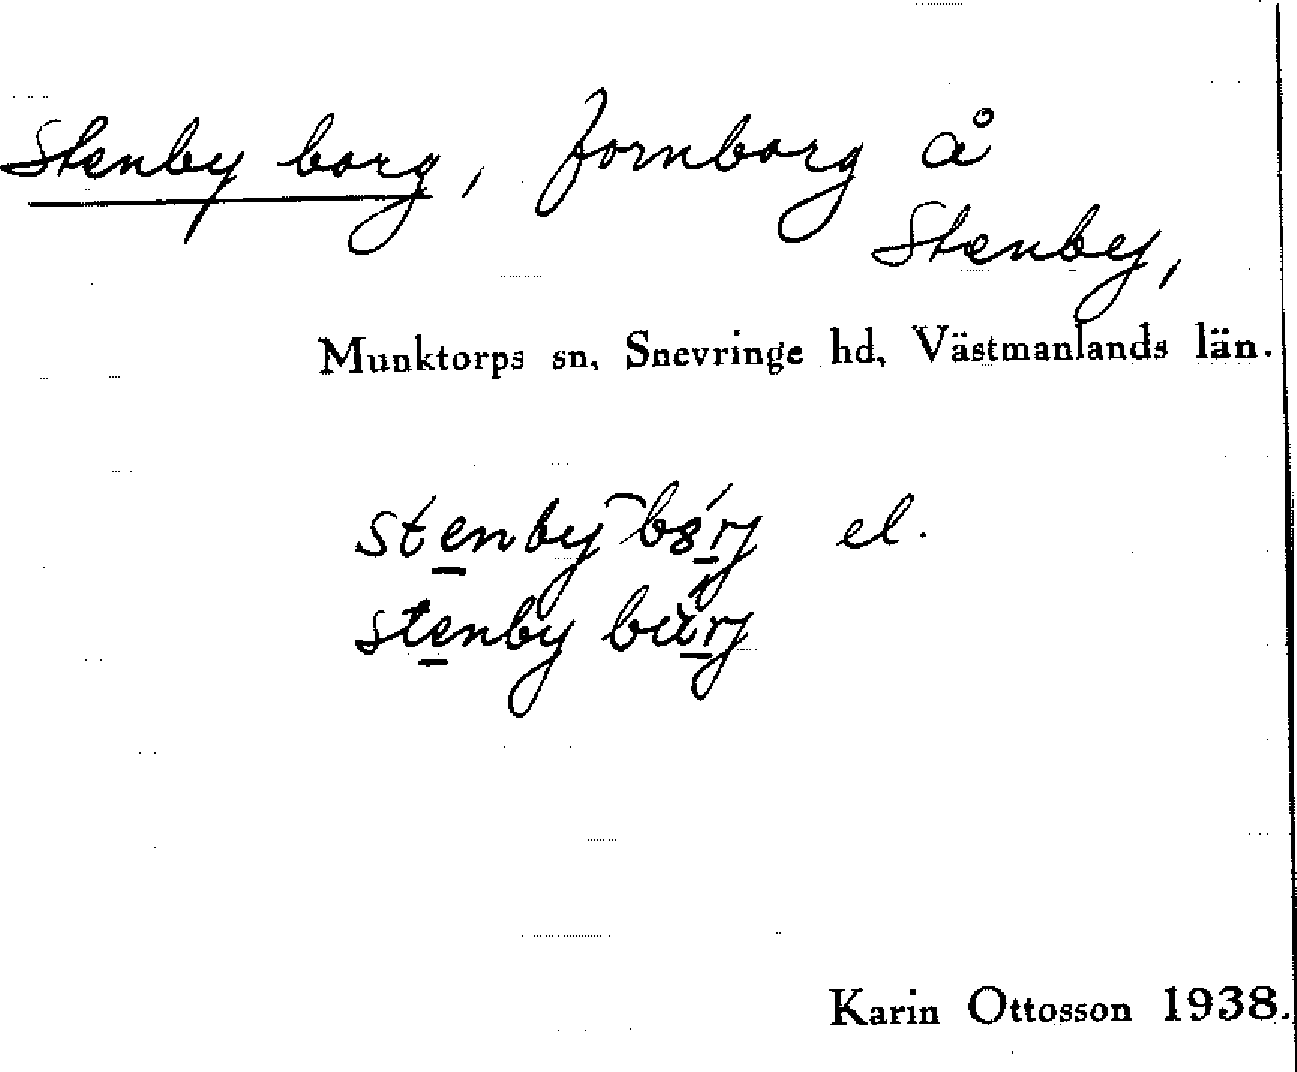 Stenby borg, fornborg å
Stenby,
Munktorps sn, Snevringe hd, Västmanlands län.
stenby el.
stenby
Karin Ottosson 1938.